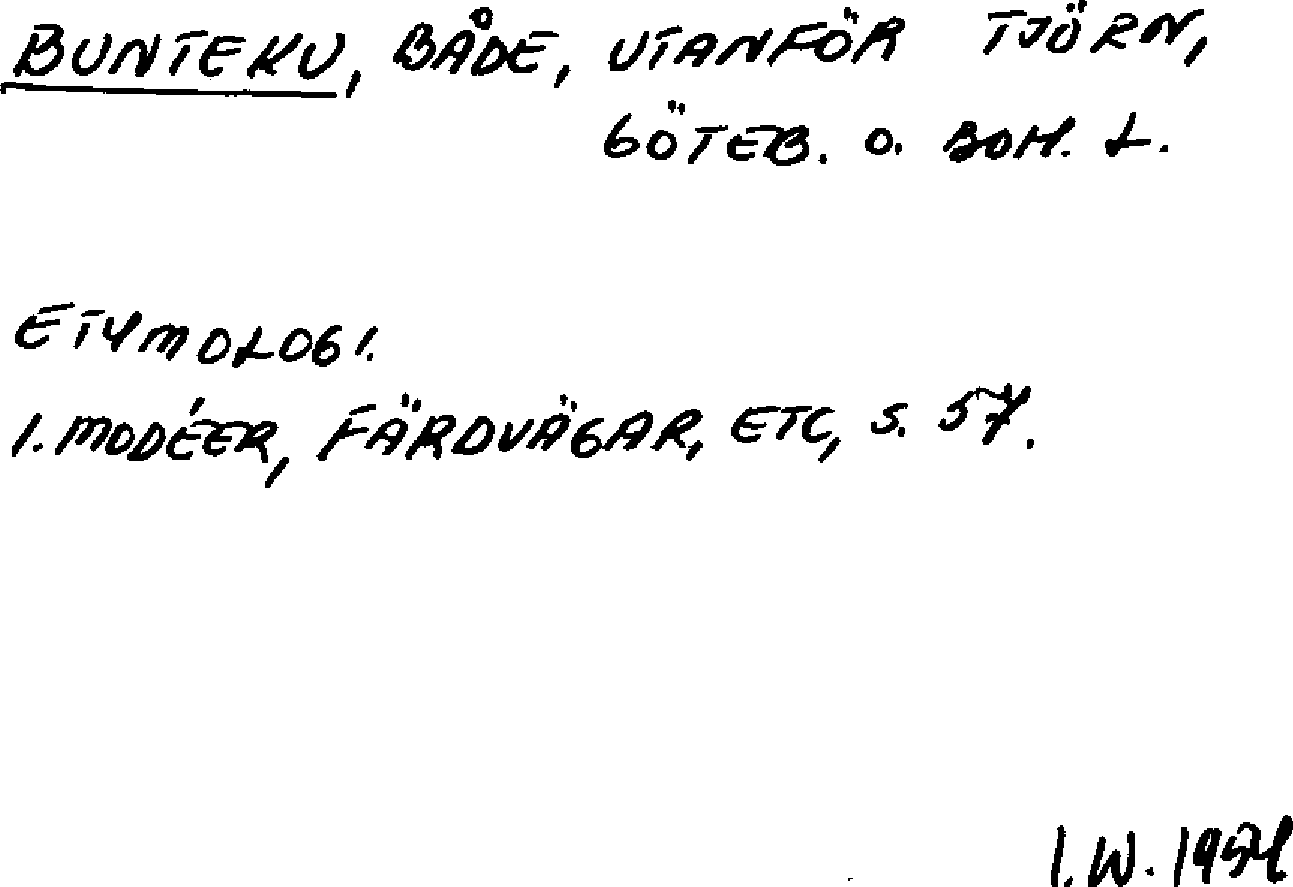 BUNTEKU, BÅDE, UTANFÖR TJÖRN,
GÖTEB. O. BOH. L.
ETYMOLOGI.
I. MODÉER, FÄRDVÄGAR, ETC, S. 57.
I. W.